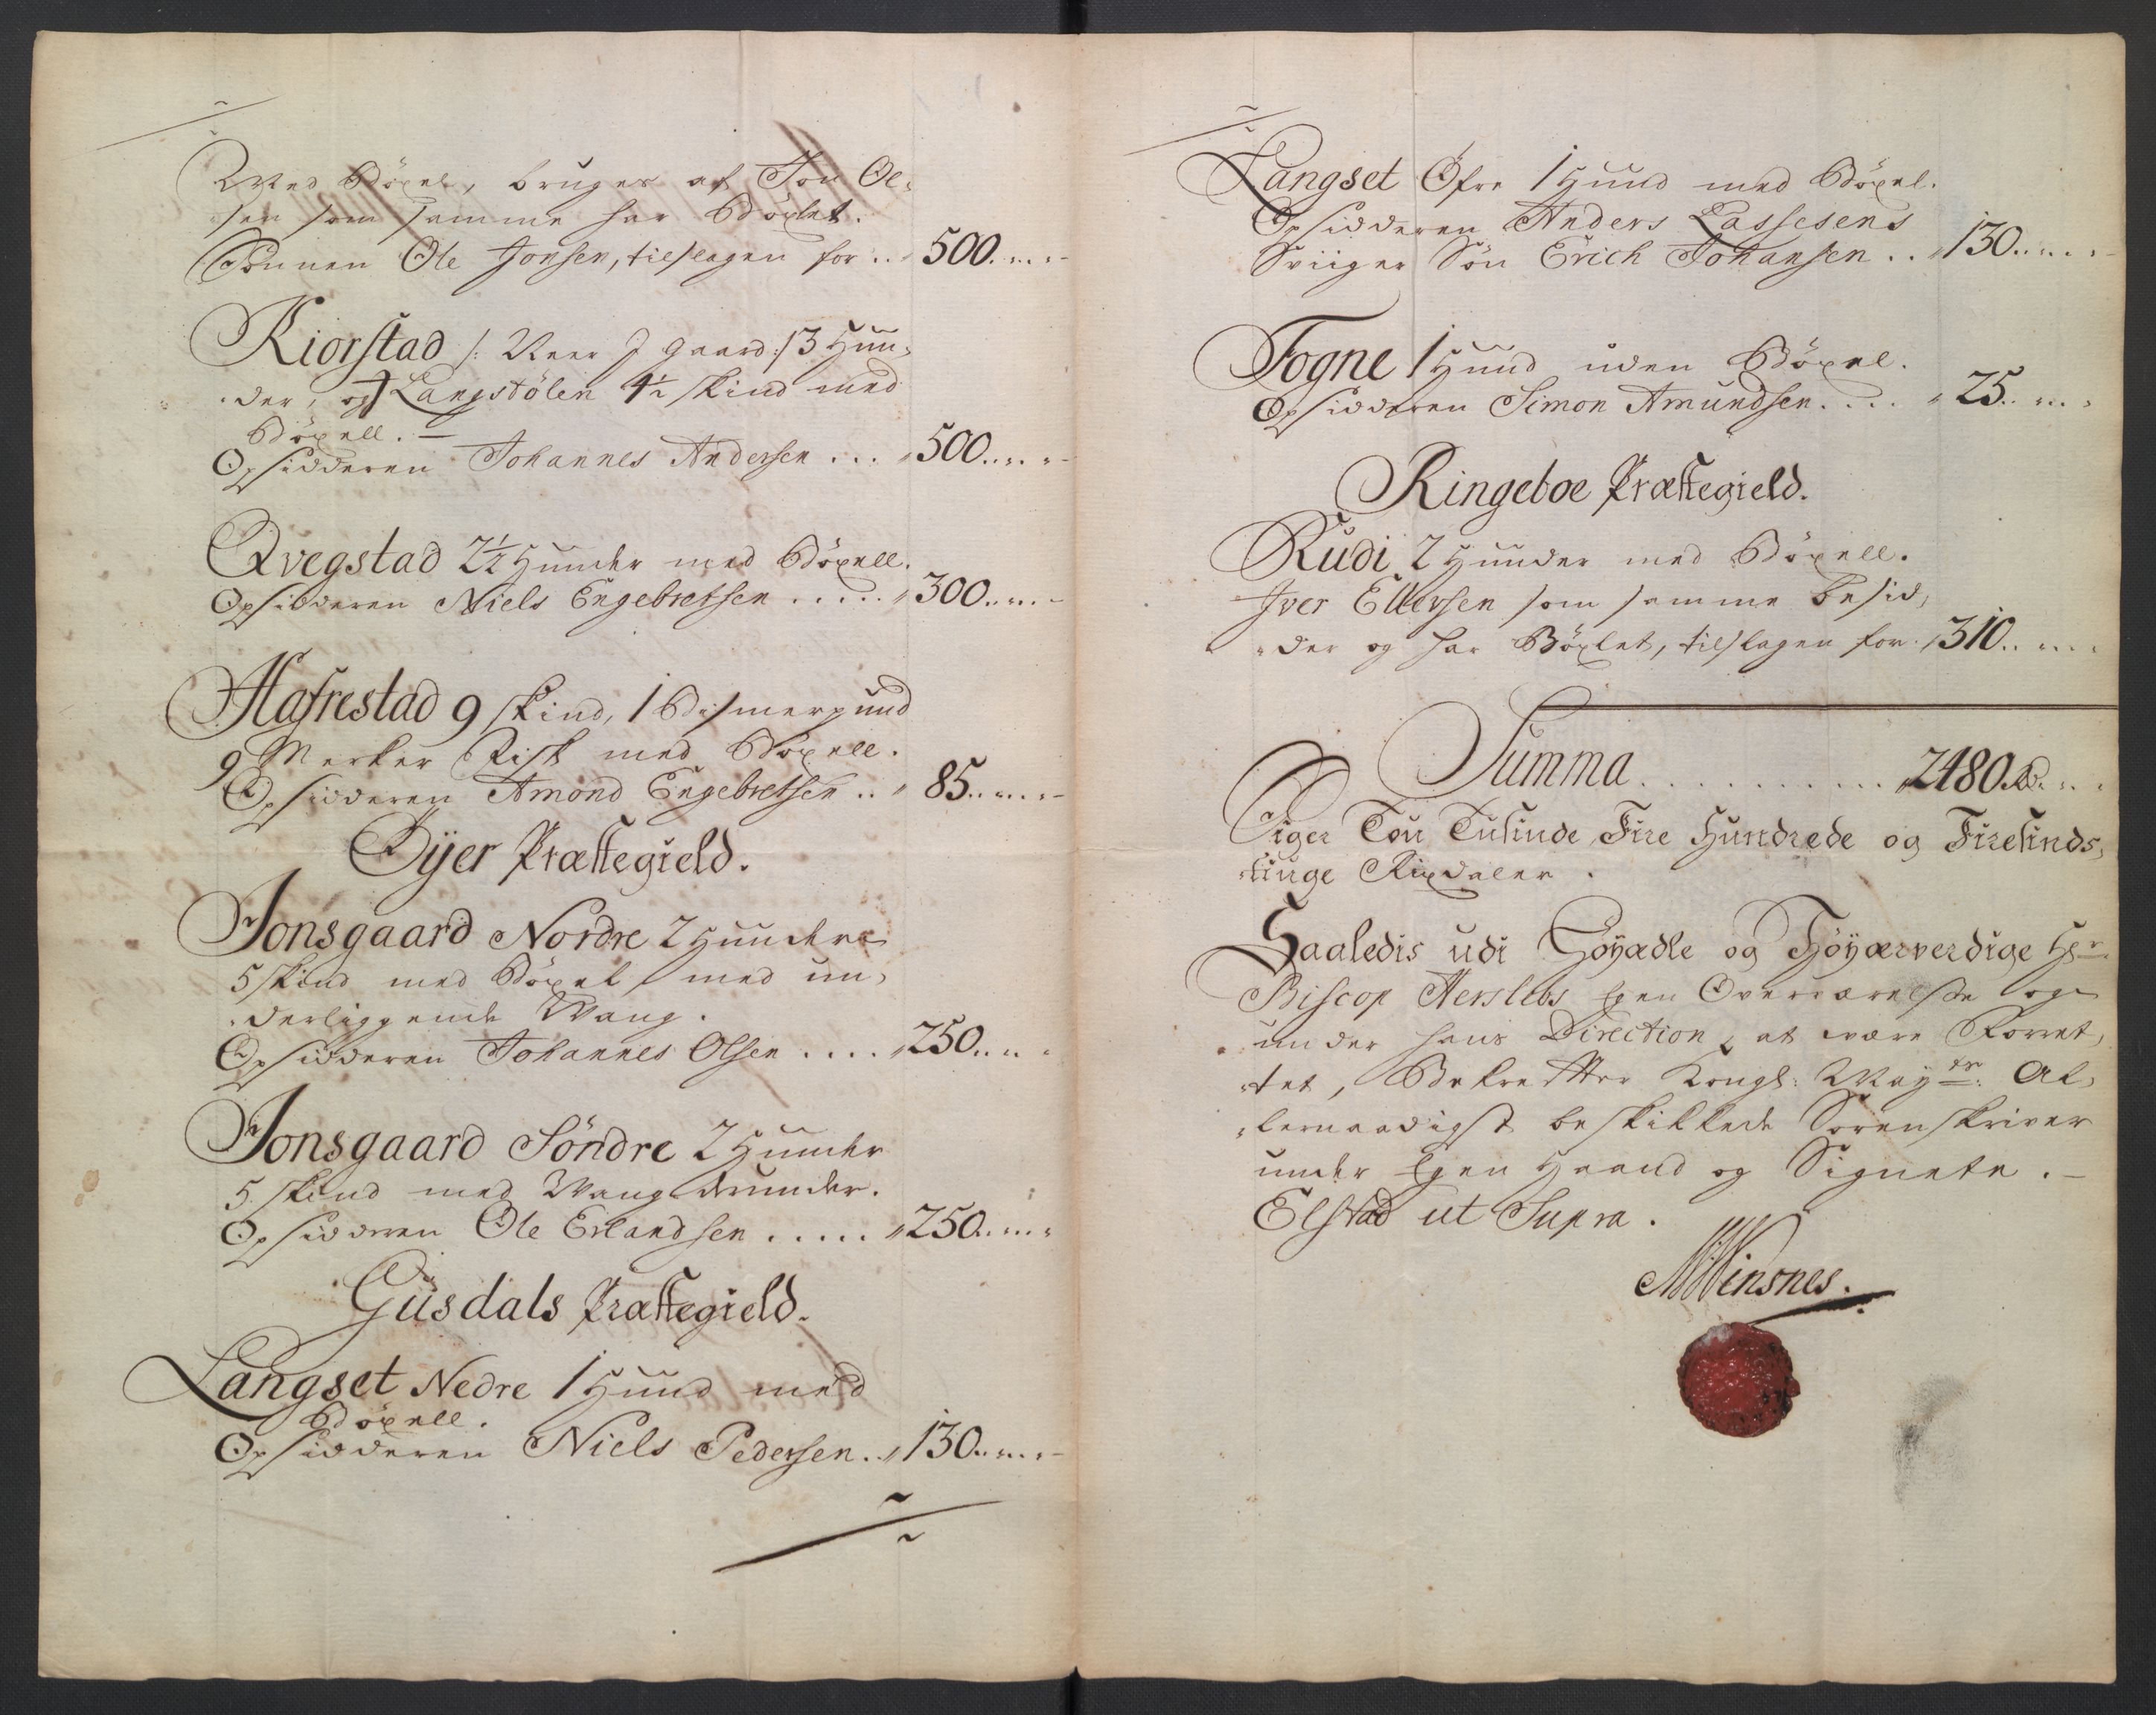 Med Böxel, bruges af Jon Ol-
sen som samme har Böxlet.
Sönnen Ole Jonsen, tilslagen for .. 500.
Kiorstad /: Veer J gaard :/ 3 Hun-
der, og Langstölen 4½ skind med
Böxell. —
Opsidderen Johannes Andersen ... 500.
Qvegstad 2½ Hunder med Böxell.
Opsidderen Niels Engebretsen ..... 300.
Hafrestad 9 skind, 1 Bismerpund
9 Merker Fisk med Böxell.
Opsidderen Amond Engebretsen .. 85.
Öyer Præstegield.
Jonsgaard Nordre 2 Hunder
5 skind med Böxel med un-
derliggende Wang.
Opsidderen Johannes Olsen .... 250.
Jonsgaard Söndre 2 Hunder
5 skind med Wang derunder.
Opsidderen Ole Erlandsen ..... 250.
Gusdals Præstegield.
Langset Nedre 1 Hund med
Böxell.
Opsidderen Niels Pedersen .. 130.
Langset Öfre 1 Hund med Böxel.
Opsidderen Anders Lassesens
Sviiger Sön Erich Johansen .. 130.
Fogne 1 Hund uden Böxel.
Opsidderen Simon Amundsen .... 25.
Ringeboe Præstegield.
Rudi 2 Hunder med Böxell.
Iver Ellevsen som samme besid-
der og har Böxlet, tilslagen for 310.
Summa ........... 2480 Rd.
Siger Tou Tusinde Fire Hundrede og Firesinds-
tiuge Rixdaler.
Saaledis udi Höyædle og Höyærverdige Hr.
Biscop Herslebs Egen Overværelse og
under hans Direction at være Forret-
tet, Bekrefter Kongl: Mayts: Al-
lernaadigst beskikkede Sorenskriver
under Egen Haand og Signete. —
Elstad ut Supra.
MWinsnes.